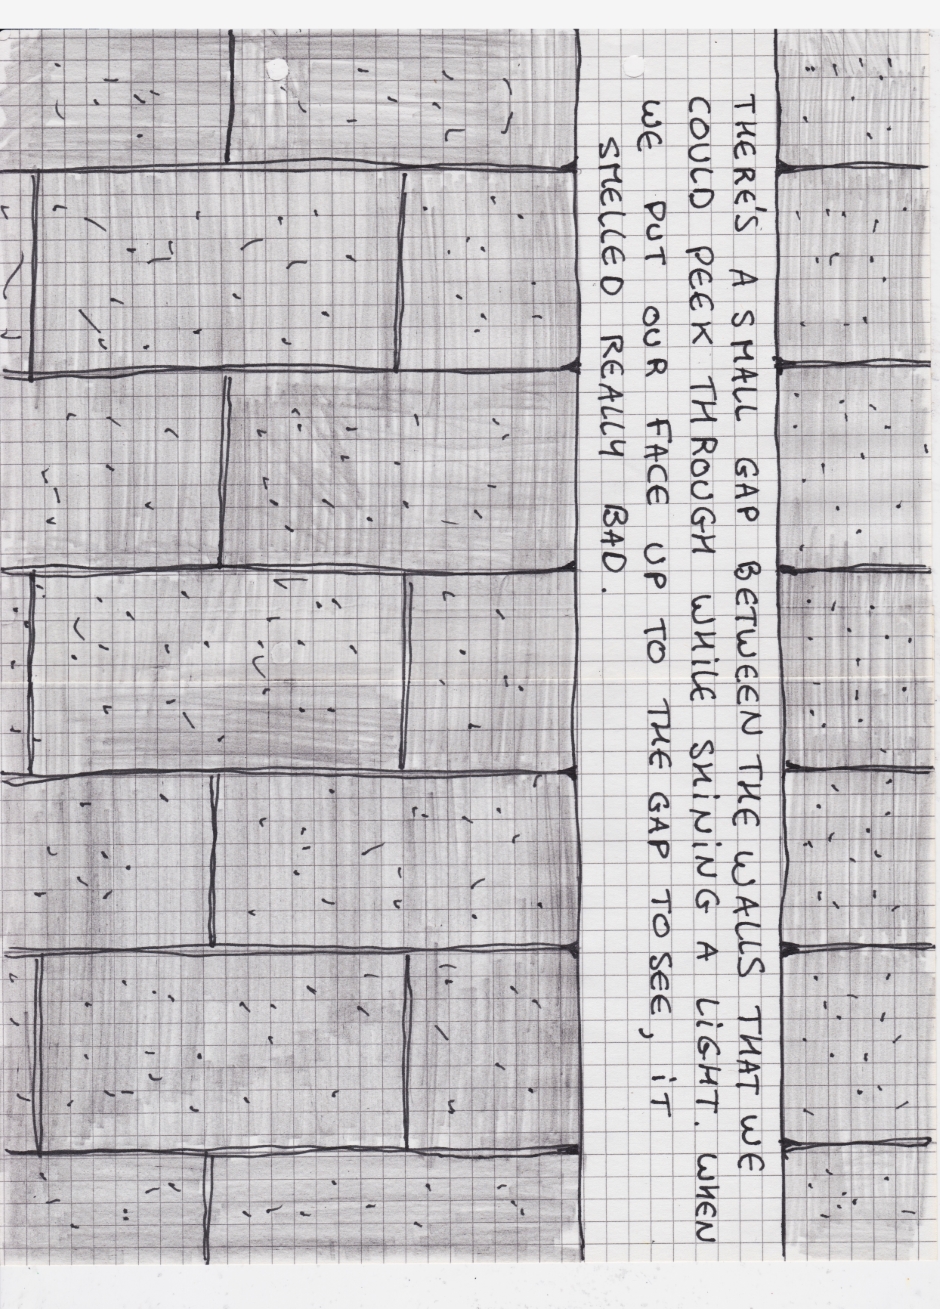 THERE'S A SMALL GAP BETWEEN THE WALLS THAT WE
COULD PEEK THROUGH WHILE SHINING A LIGHT. WHEN
WE PUT OUR FACE UP TO THE GAP TO SEE, IT
SMELLED REALLY BAD.